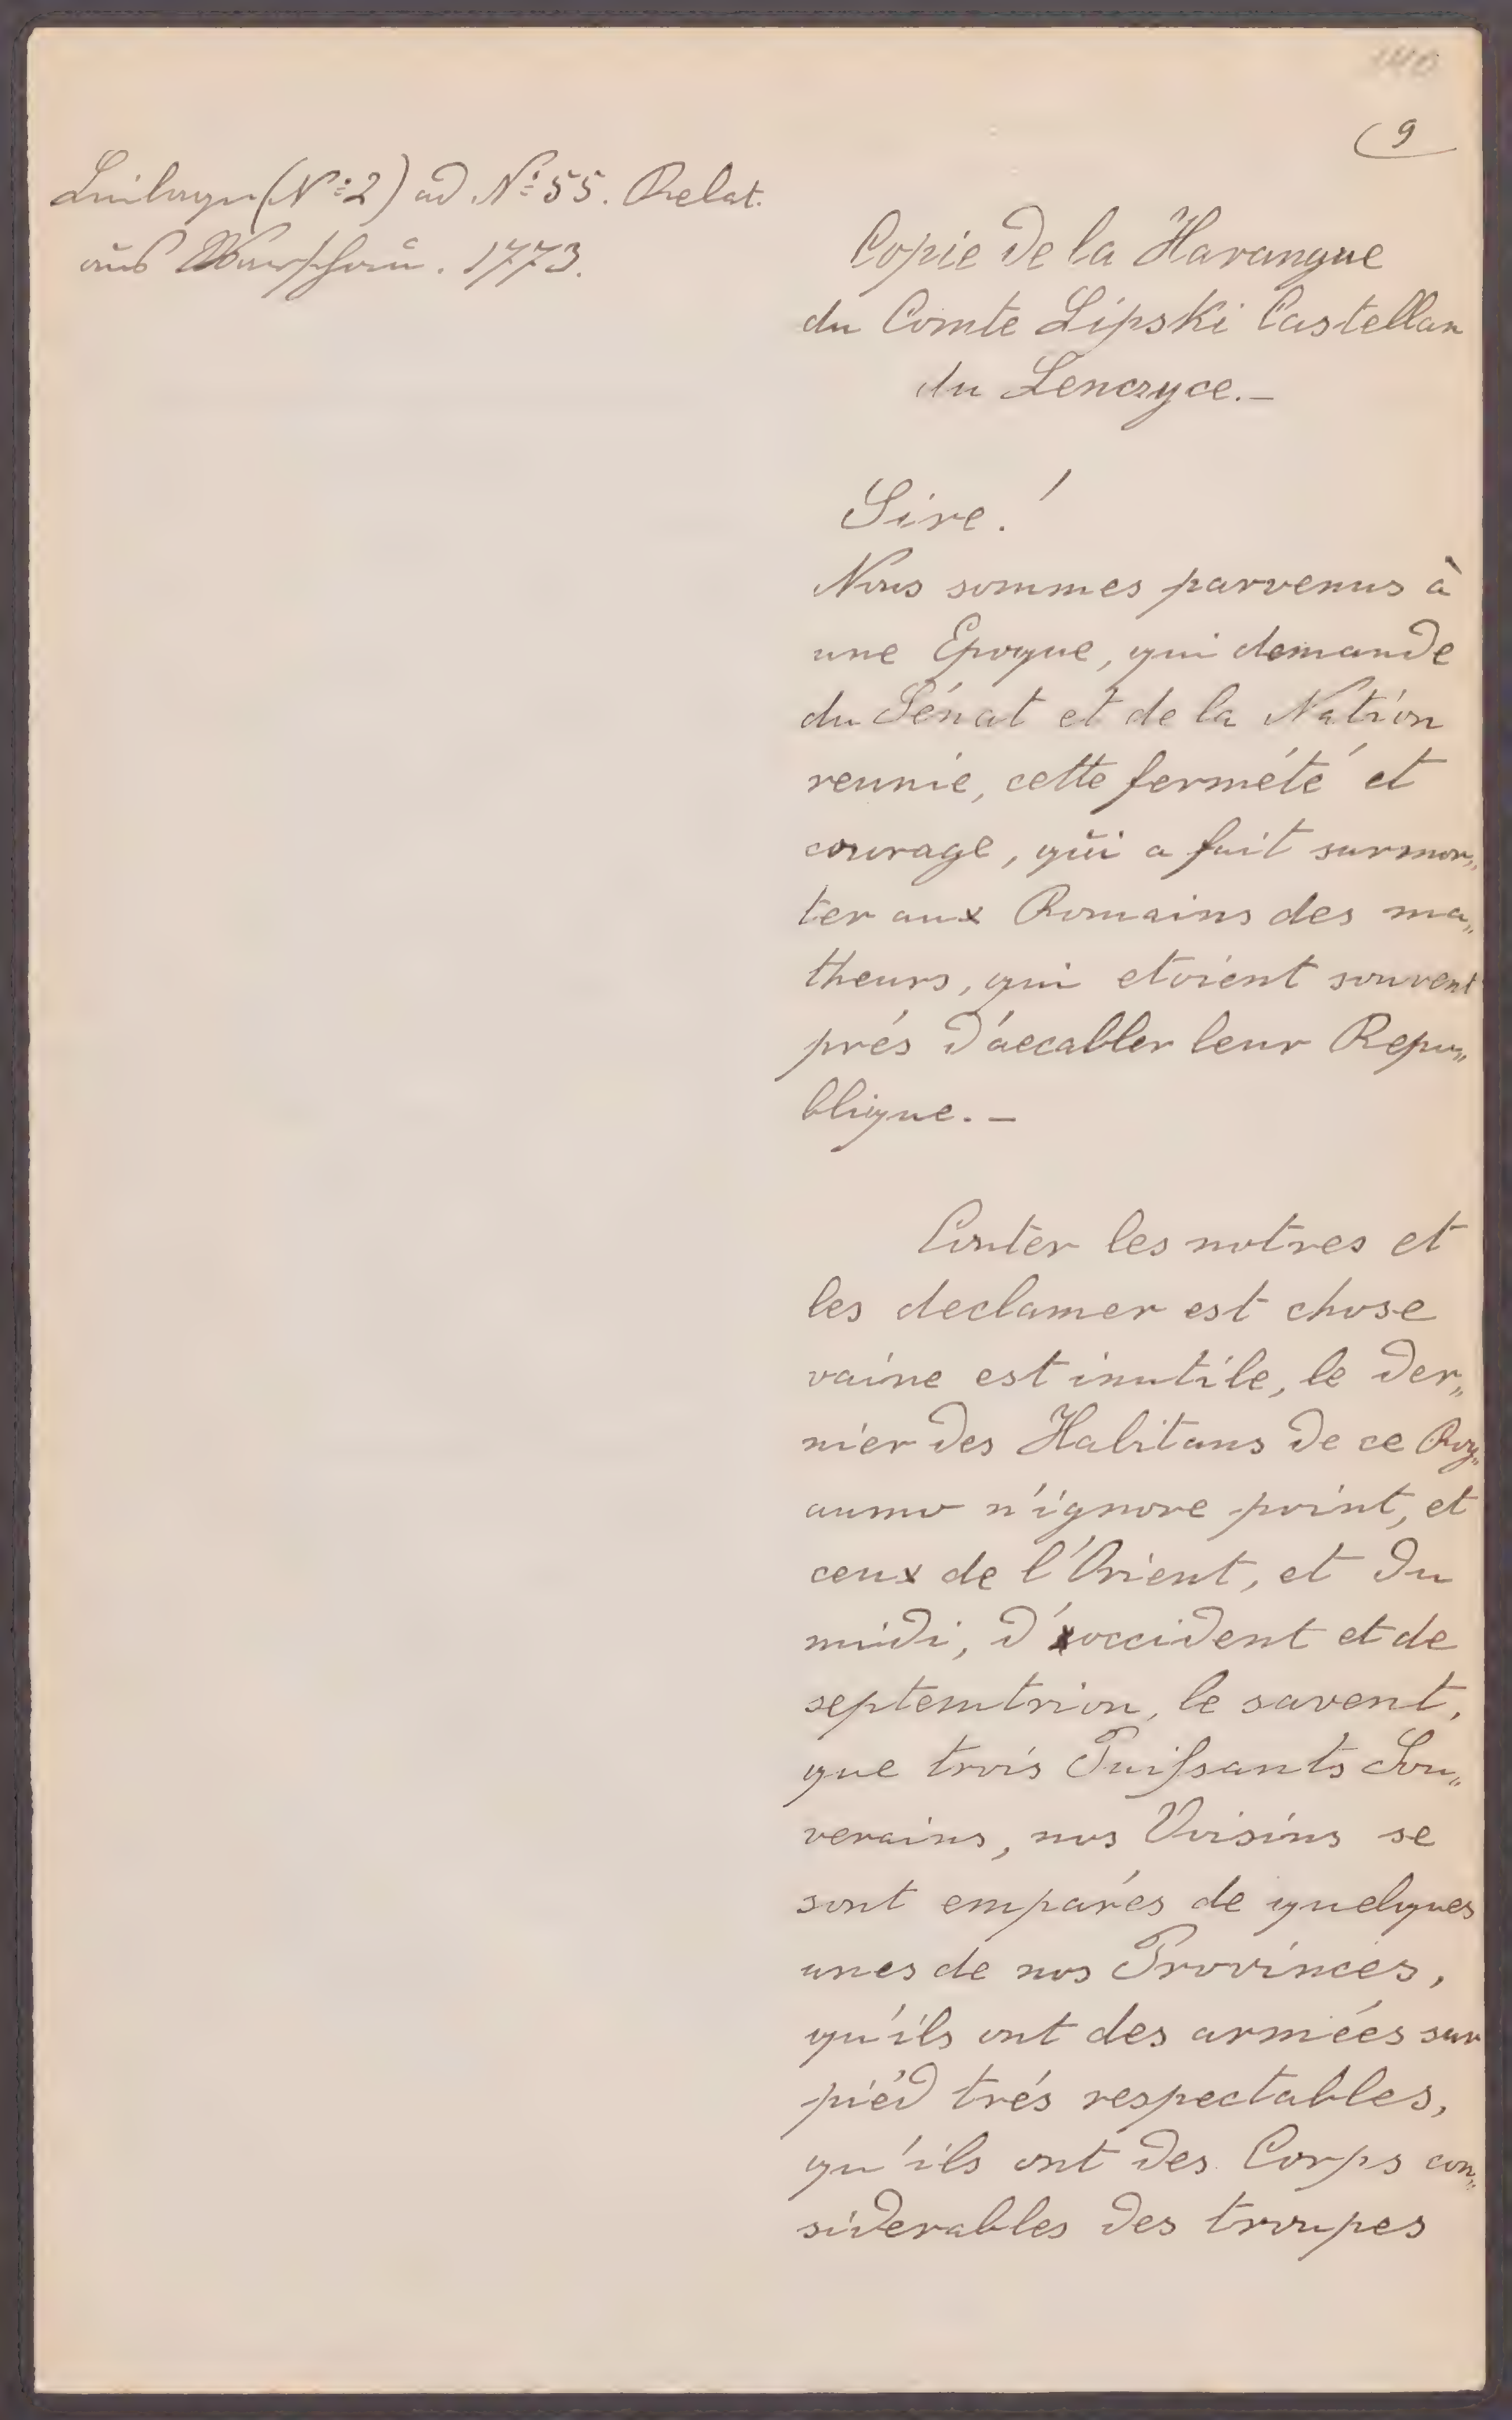 9
Beilage (N: 2) ad N: 55. Relat.
aus Warschau. 1773.
Copie de la Harangue
du Comte Lipski Castellan
du Lenczyce.—
Sire!
Nous sommes parvenus à
une Epoque, qui demande
du Sénat et de la Nation
reunie, cette férmété et
courage, qui a fait surmon„
ter aux Romains des ma„
lheurs, qui etoient souvent
prés d'accabler leur Repu„
blique.—
Conter les notres et
les declamer est chose
vaine est inutile, le der„
nier des Habitans de ce Roy„
aume n'ignore point, et
ceux de l'Orient, et du
midi, d'occident et de
septemtrion, le savent,
que trois Puissants Sou„
verains, nos Voisins se
sont emparés de quelques
unes de nos Provinces,
qu'ils ont des armées sur
piéd trés respectables,
qu'ils ont des Corps con„
siderables des troupes